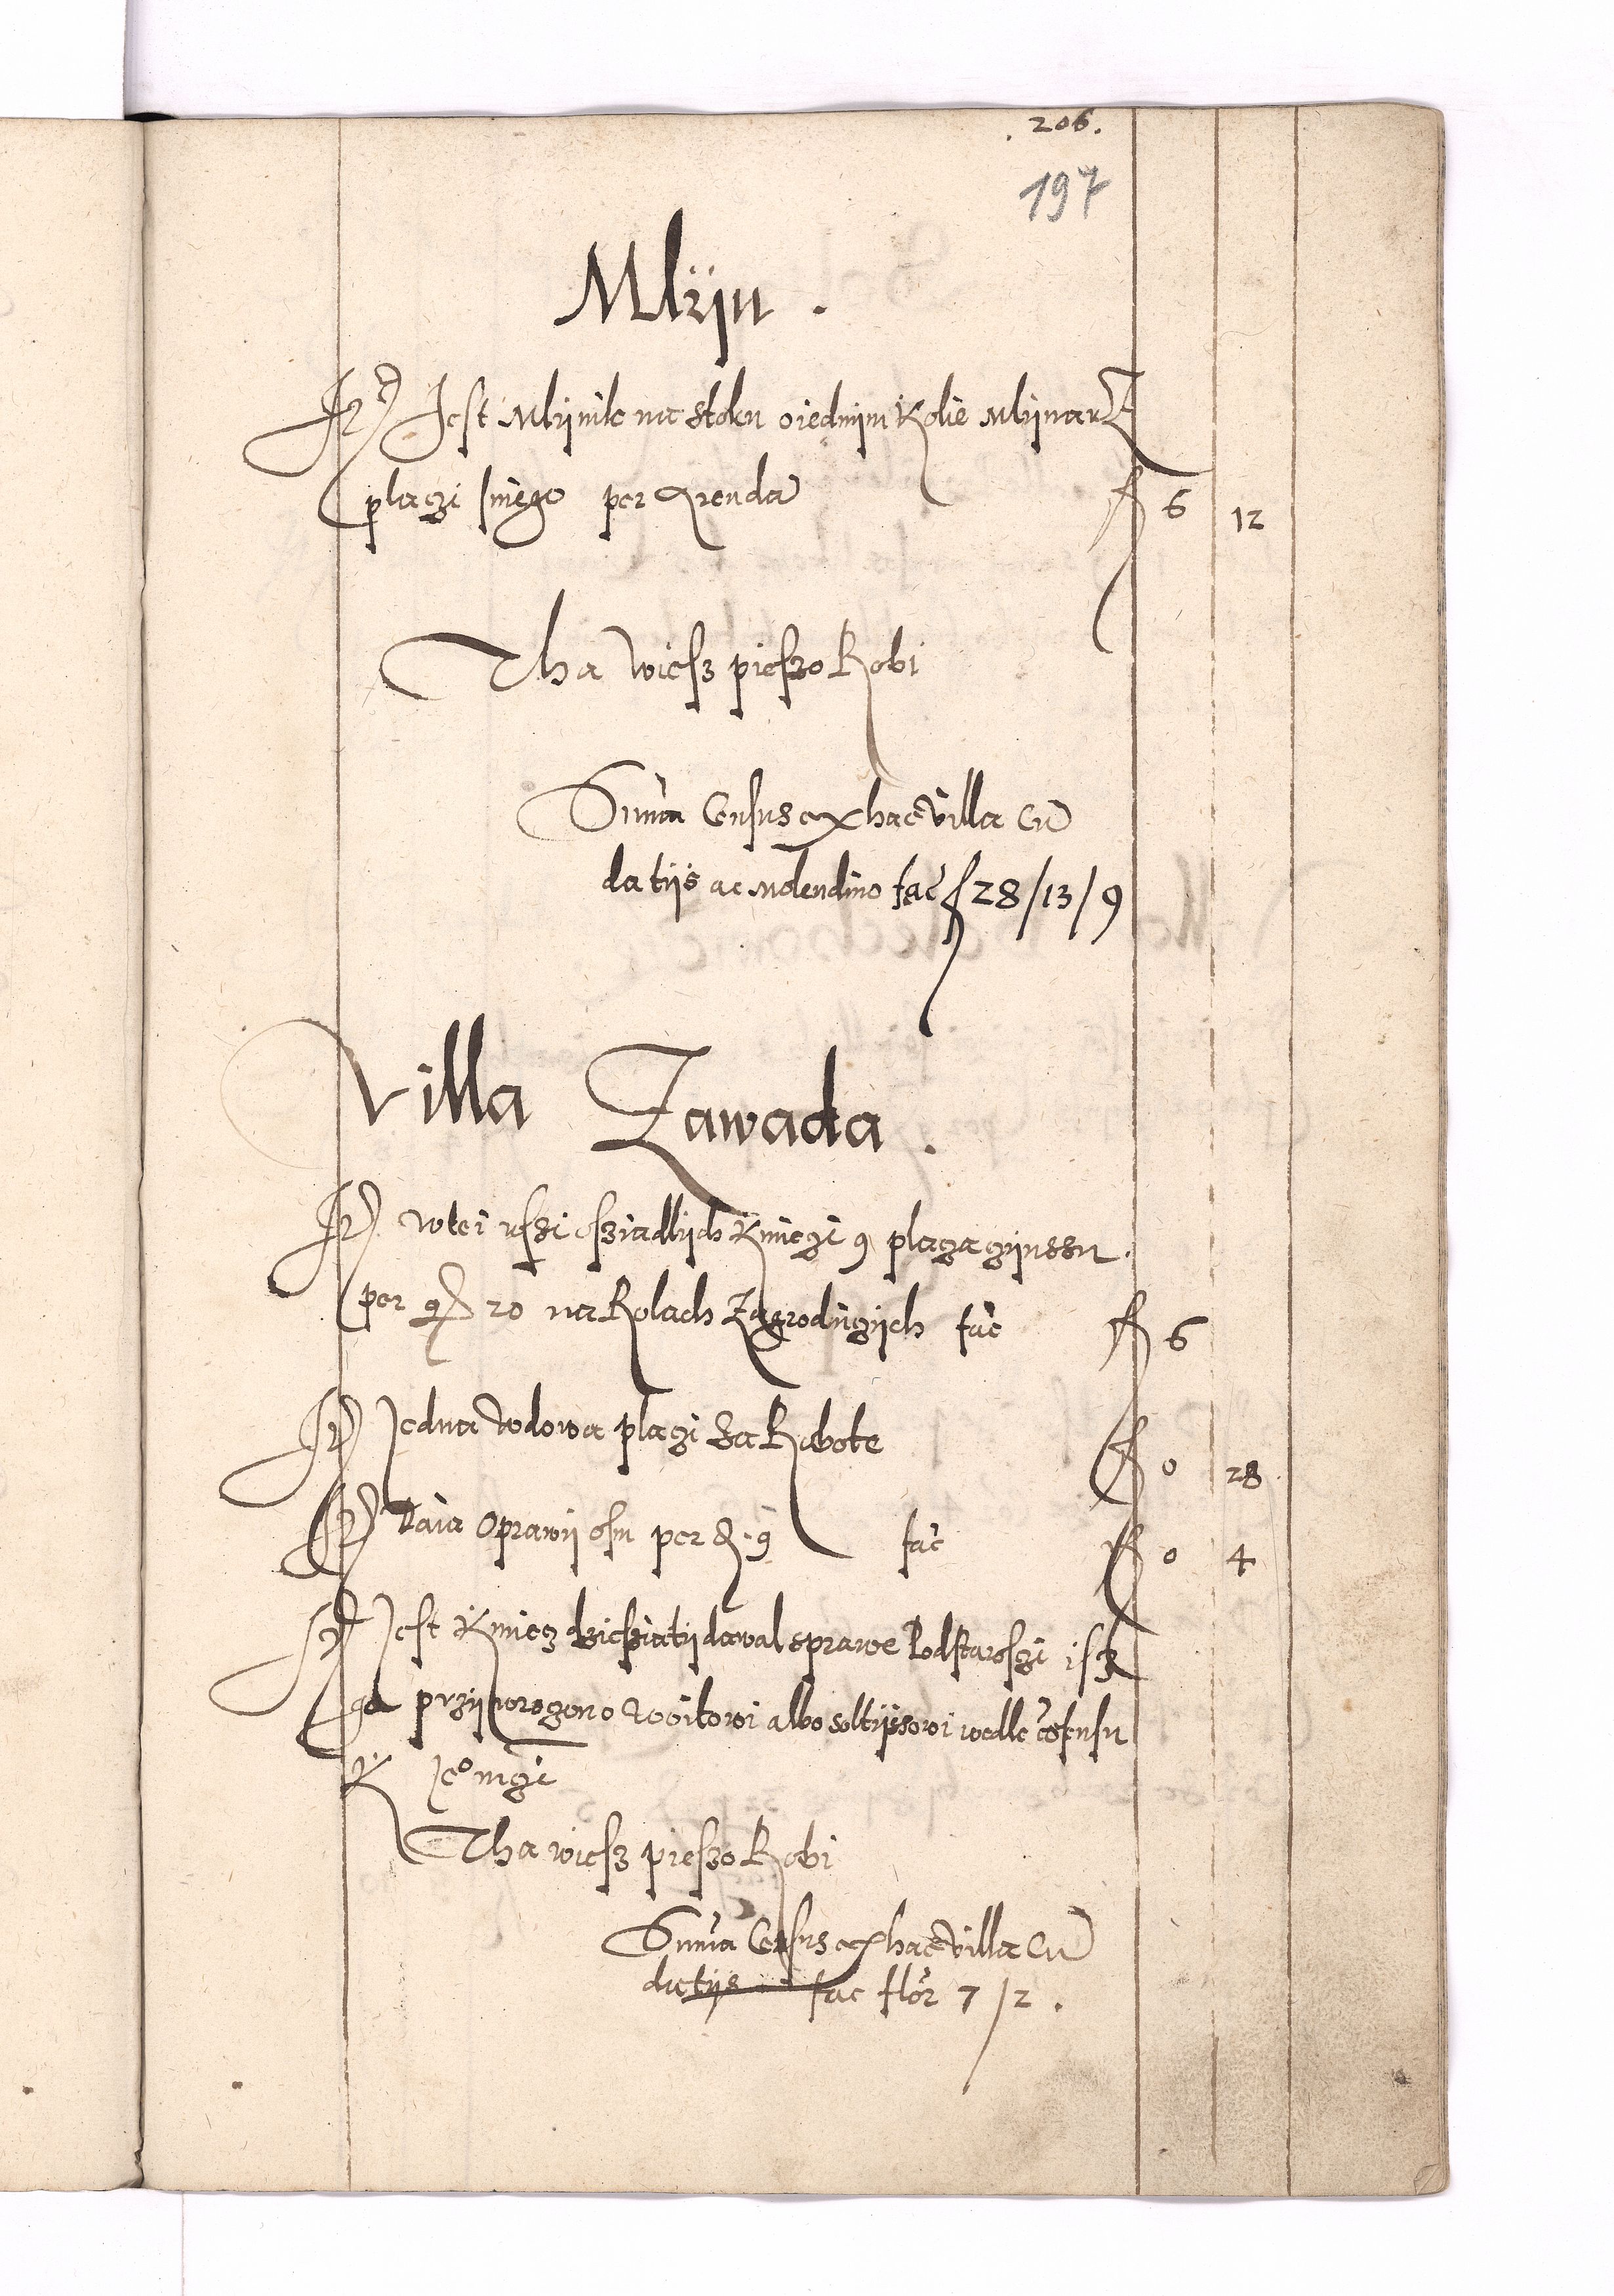 . 206 .
197
Mlÿn .
It Jest Mlynik na Stoku o iednym Kolie Mlynarz
placzi sniego per Arenda f 6 12
Tha wiesz pieszo Robi
Suma Census ex hac villa cu
datiis ac Molendino fac f 28/13/9
Villa Zawada .
It wtei wszi osziadlych Kmieczi 9 placza czynssu
per g 20 na Rolach Zagrodnych fac f 6
It Jedna wdowa placzi Za Robote f 0 28
It Daia Oprawy osm per 9 fac f 0 4
It Jest Kmiecz dziesziaty dawal sprawe Podstaroszi isz
go przywroczono woitowi albo soltyssowi wedle cosensu
K Jeo mczi
Tha wiesz pieszo Robi
Suma Census ex hac villa cu
datiis fac flor 7/2 .